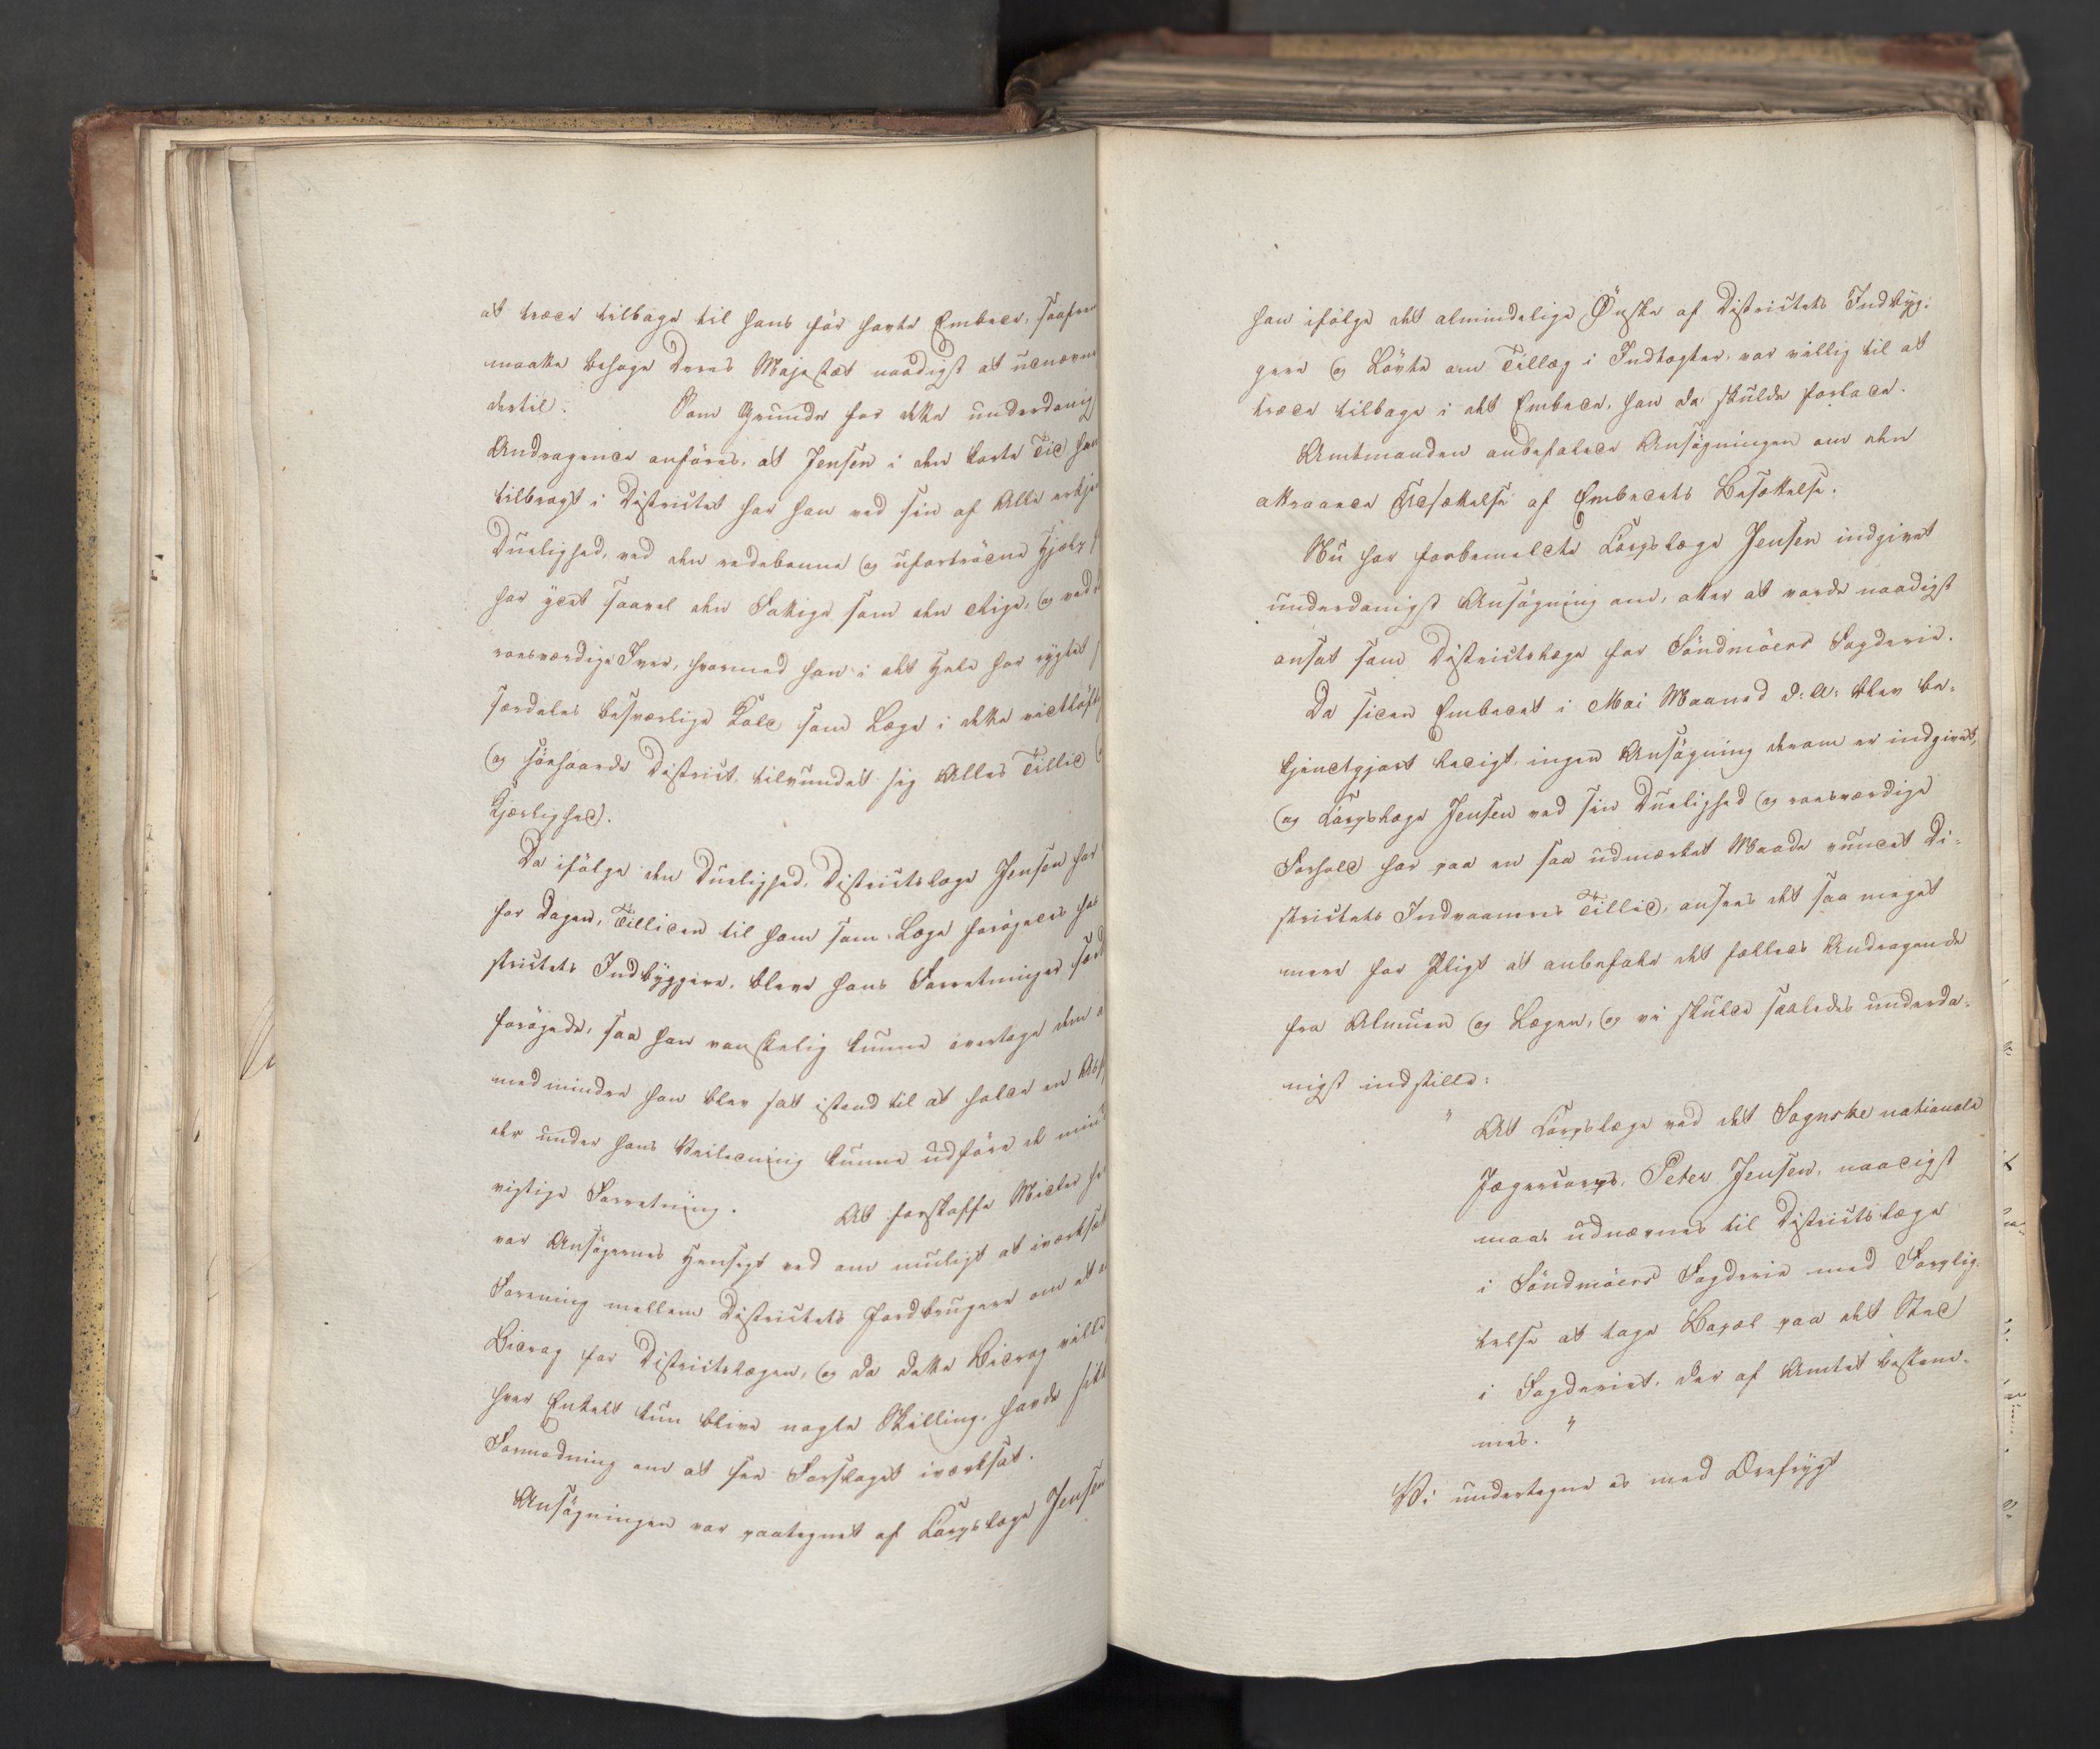 at træde tilbage til hans før havte Embede, saafrem
maatte behage Deres Majestæt naadigst at udnævne
dertil. Som Grunde for dette underdanig
Andragende anføres, at Jensen i den korte Tid han
tilbragt i Districtet har han ved sin af Alle erkje
Duelighed, ved den redebonne og ufortrødne Hjælp
har ydet saavel den Fattige som den Rige, og ved
roesværdige Iver, hvormed han i det Hele har rygtet
særdeles besværlige Kald som Læge i dette vidtløft
og haarde District, tilvundet sig Alles Tillid
Kjærlighed.
Da ifølge den Duelighed, Districtslæge Jensen har
for Dagen, Tilliden til ham som Læge forøgedes hos
strictets Indbyggere, bleve hans Forretninger sær
forøgede, saa han vanskelig kunne overtage dem
medmindre han blev sat istand til at holde en
der under hans Veiledning kunne udføre de mind
vigtige Forretning. At forskaffe Midler he
var Ansøgernes Hensigt ved om muligt at iværksæt
Forening mellem Districtets Jordbrugere om at
Bidrag for Districtslægen, og da dette Bidrag vilde
hver Enkelt kun blive nogle Skilling, havde
Formodning om at see Forslaget iværksat.
Ansøgningen var paategnet af Corpslæge Jensen
han ifølge det almindelige Ønske af Districtets Indbyg-
gere og Løvte om Tillæg i Indtægter, var villig til at
træde tilbage i det Embede, han da skulde forlade.
Amtmanden anbefalede Ansøgningen om den
attraaede Udsættelse af Embedets Besættelse.
Nu har forbemeldte Corpslæge Jensen indgivet
underdanigst Ansøgning om, atter at vorde naadigst
ansat som Districtslæge for Søndmøers Fogderie.
Da siden Embedet i Mai Maaned d: A: blev be-
kjendtgjort ledigt, ingen Ansøgning derom er indgivet,
og Corpslæge Jensen ved sin Duelighed og roesværdige
Forhold har paa en saa udmærket Maade vundet Di-
strictets Indvaaneres Tillid, ansees det saa meget
mere for Pligt at anbefale det fælleds Andragende
fra Almuen og Lægen, og vi skulde saaledes underda-
nigst indstille:
" At Corpslæge ved det Sognske nationale
Jægercorps, Peter Jensen, naadigst
maae udnævnes til Districtslæge
i Søndmøers Fogderie med Forplig-
telse at tage Bopæl paa det Sted
i Fogderiet, der af Amtet bestem-
mes. "
Vi undertegne os med Ærefrygt